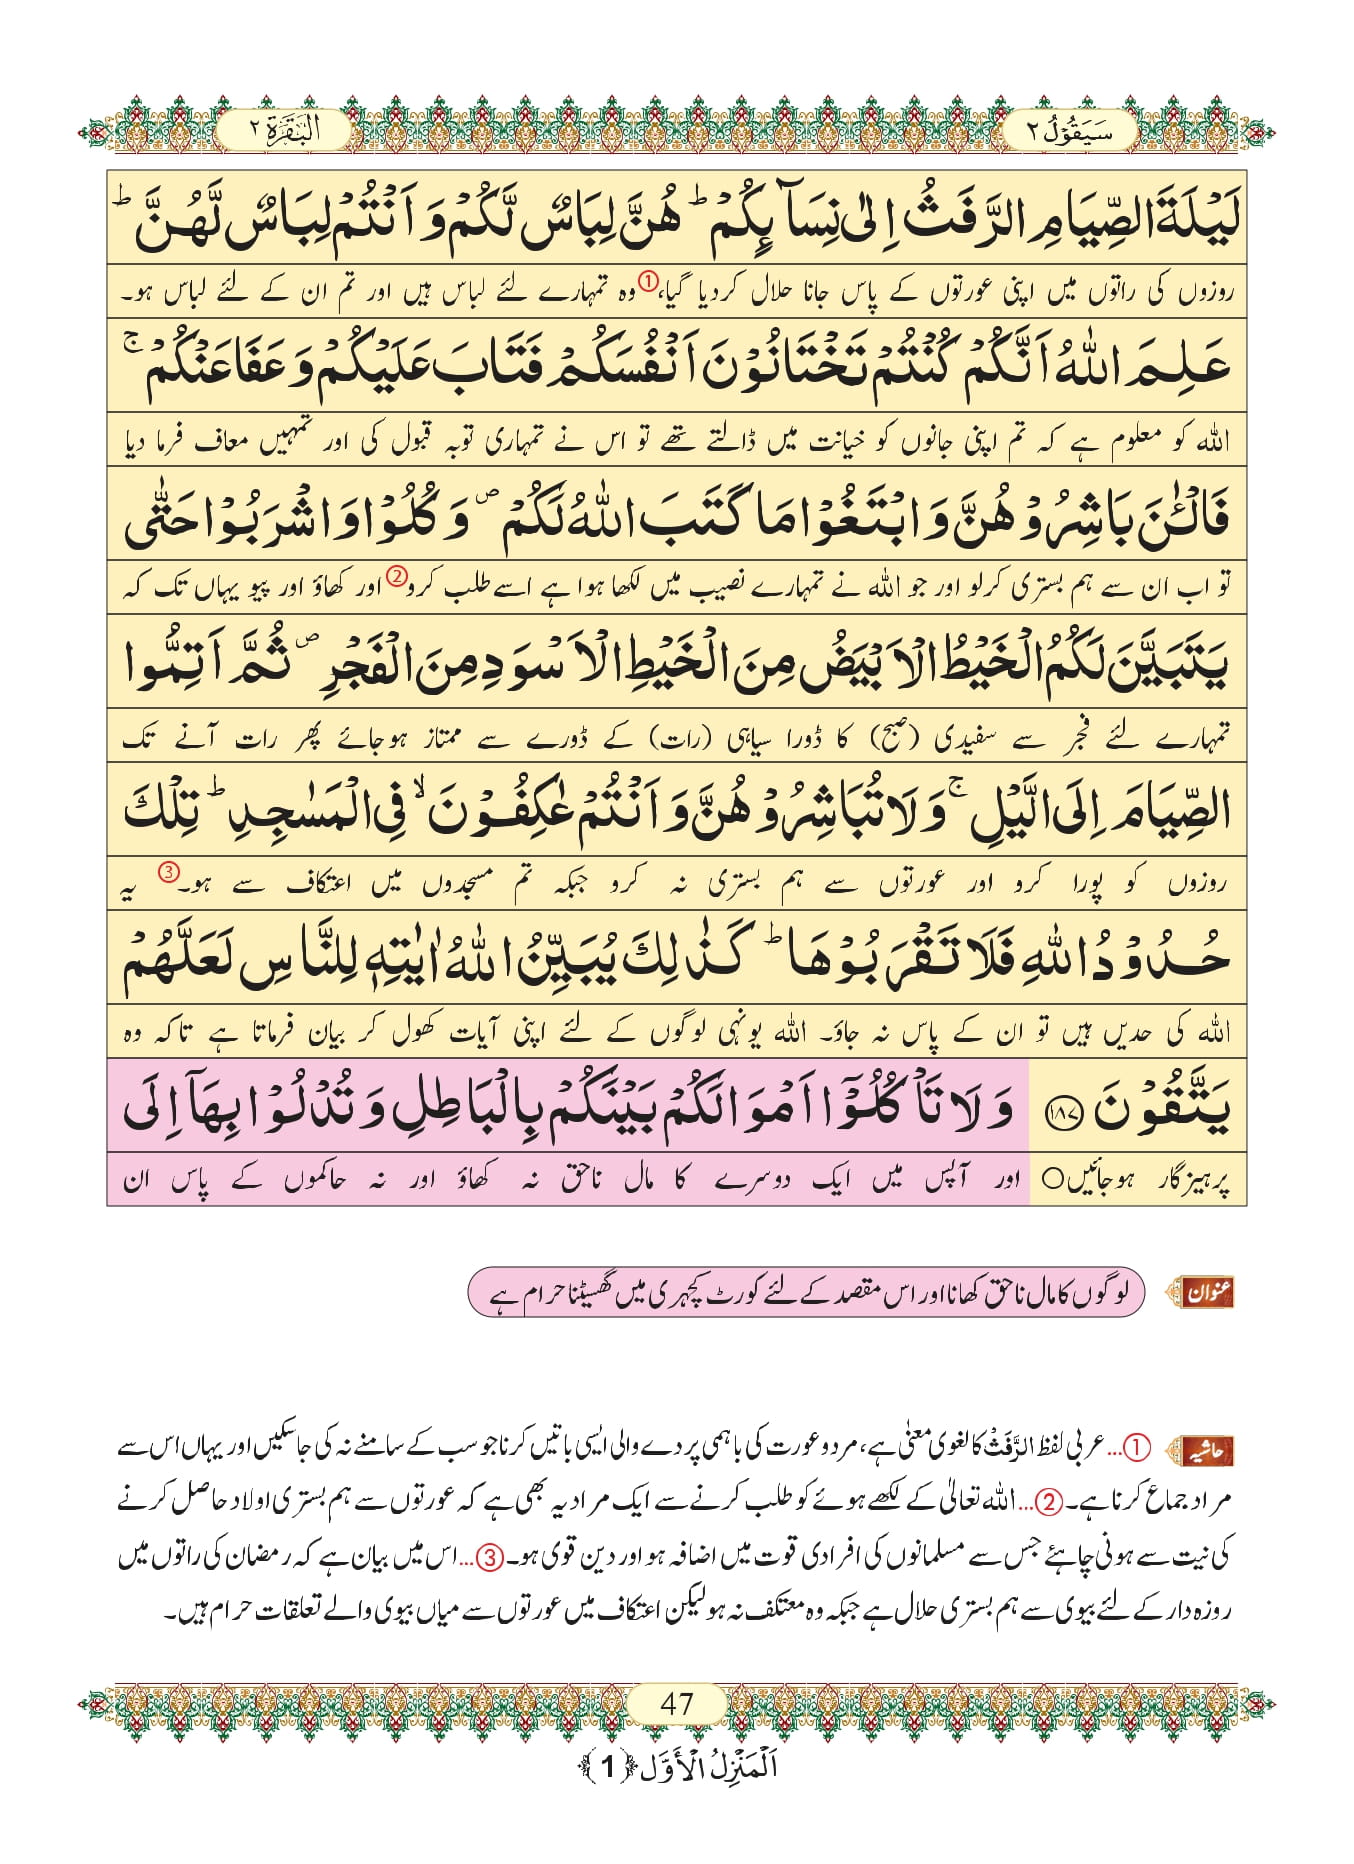 سَيَقُوْلُ ٢
اَلْبَقَرَة ٢
لَيْلَةَ الصِّيَامِ الرَّفَثُ اِلٰى نِسَآىٕكُمْ ؕ هُنَّ لِبَاسٌ لَّكُمْ وَ اَنْتُمْ لِبَاسٌ لَّهُنَّ ؕ
روزوں کی راتوں میں اپنی عورتوں کے پاس جانا حلال کردیا گیا،① وہ تمہارے لئے لباس ہیں اور تم ان کے لئے لباس ہو۔
عَلِمَ اللّٰهُ اَنَّكُمْ كُنْتُمْ تَخْتَانُوْنَ اَنْفُسَكُمْ فَتَابَ عَلَيْكُمْ وَ عَفَا عَنْكُمْ ۚ
اللہ کو معلوم ہے کہ تم اپنی جانوں کو خیانت میں ڈالتے تھے تو اس نے تمہاری توبہ قبول کی اور تمہیں معاف فرما دیا
فَالْـٰٔنَ بَاشِرُوْهُنَّ وَ ابْتَغُوْا مَا كَتَبَ اللّٰهُ لَكُمْ ۪ وَ كُلُوْا وَ اشْرَبُوْا حَتّٰى
تو اب ان سے ہم بستری کرلو اور جو اللہ نے تمہارے نصیب میں لکھا ہوا ہے اسے طلب کرو② اور کھاؤ اور پیو یہاں تک کہ
يَتَبَيَّنَ لَكُمُ الْخَيْطُ الْاَبْيَضُ مِنَ الْخَيْطِ الْاَسْوَدِ مِنَ الْفَجْرِ ۪ ثُمَّ اَتِمُّوا
تمہارے لئے فجر سے سفیدی (صبح) کا ڈورا سیاہی (رات) کے ڈورے سے ممتاز ہوجائے پھر رات آنے تک
الصِّيَامَ اِلَى الَّيْلِ ۚ وَ لَا تُبَاشِرُوْهُنَّ وَ اَنْتُمْ عٰكِفُوْنَ ۙ فِى الْمَسٰجِدِ ؕ تِلْكَ
روزوں کو پورا کرو اور عورتوں سے ہم بستری نہ کرو جبکہ تم مسجدوں میں اعتکاف سے ہو۔③ یہ
حُدُوْدُ اللّٰهِ فَلَا تَقْرَبُوْهَا ؕ كَذٰلِكَ يُبَيِّنُ اللّٰهُ اٰيٰتِهٖ لِلنَّاسِ لَعَلَّهُمْ
اللہ کی حدیں ہیں تو ان کے پاس نہ جاؤ۔ اللہ یونہی لوگوں کے لئے اپنی آیات کھول کر بیان فرماتا ہے تاکہ وہ
يَتَّقُوْنَ ﴿١٨٧﴾ وَ لَا تَاْكُلُوْۤا اَمْوَالَكُمْ بَيْنَكُمْ بِالْبَاطِلِ وَ تُدْلُوْا بِهَاۤ اِلَى
پرہیزگار ہوجائیں○ اور آپس میں ایک دوسرے کا مال ناحق نہ کھاؤ اور نہ حاکموں کے پاس ان
عنوان لوگوں کا مال ناحق کھانا اور اس مقصد کے لئے کورٹ کچہری میں گھسیٹنا حرام ہے
حاشیہ ①...عربی لفظ الرَّفَثُ کا لغوی معنٰی ہے، مرد و عورت کی باہمی پردے والی ایسی باتیں کرنا جو سب کے سامنے نہ کی جاسکیں اور یہاں اس سے
مراد جماع کرنا ہے۔ ②...اللہ تعالیٰ کے لکھے ہوئے کو طلب کرنے سے ایک مراد یہ بھی ہے کہ عورتوں سے ہم بستری اولاد حاصل کرنے
کی نیت سے ہونی چاہئے جس سے مسلمانوں کی افرادی قوت میں اضافہ ہو اور دین قوی ہو۔ ③...اس میں بیان ہے کہ رمضان کی راتوں میں
روزہ دار کے لئے بیوی سے ہم بستری حلال ہے جبکہ وہ معتکف نہ ہو لیکن اعتکاف میں عورتوں سے میاں بیوی والے تعلقات حرام ہیں۔
47
اَلْمَنْزِلُ الْأَوَّل ﴿1﴾